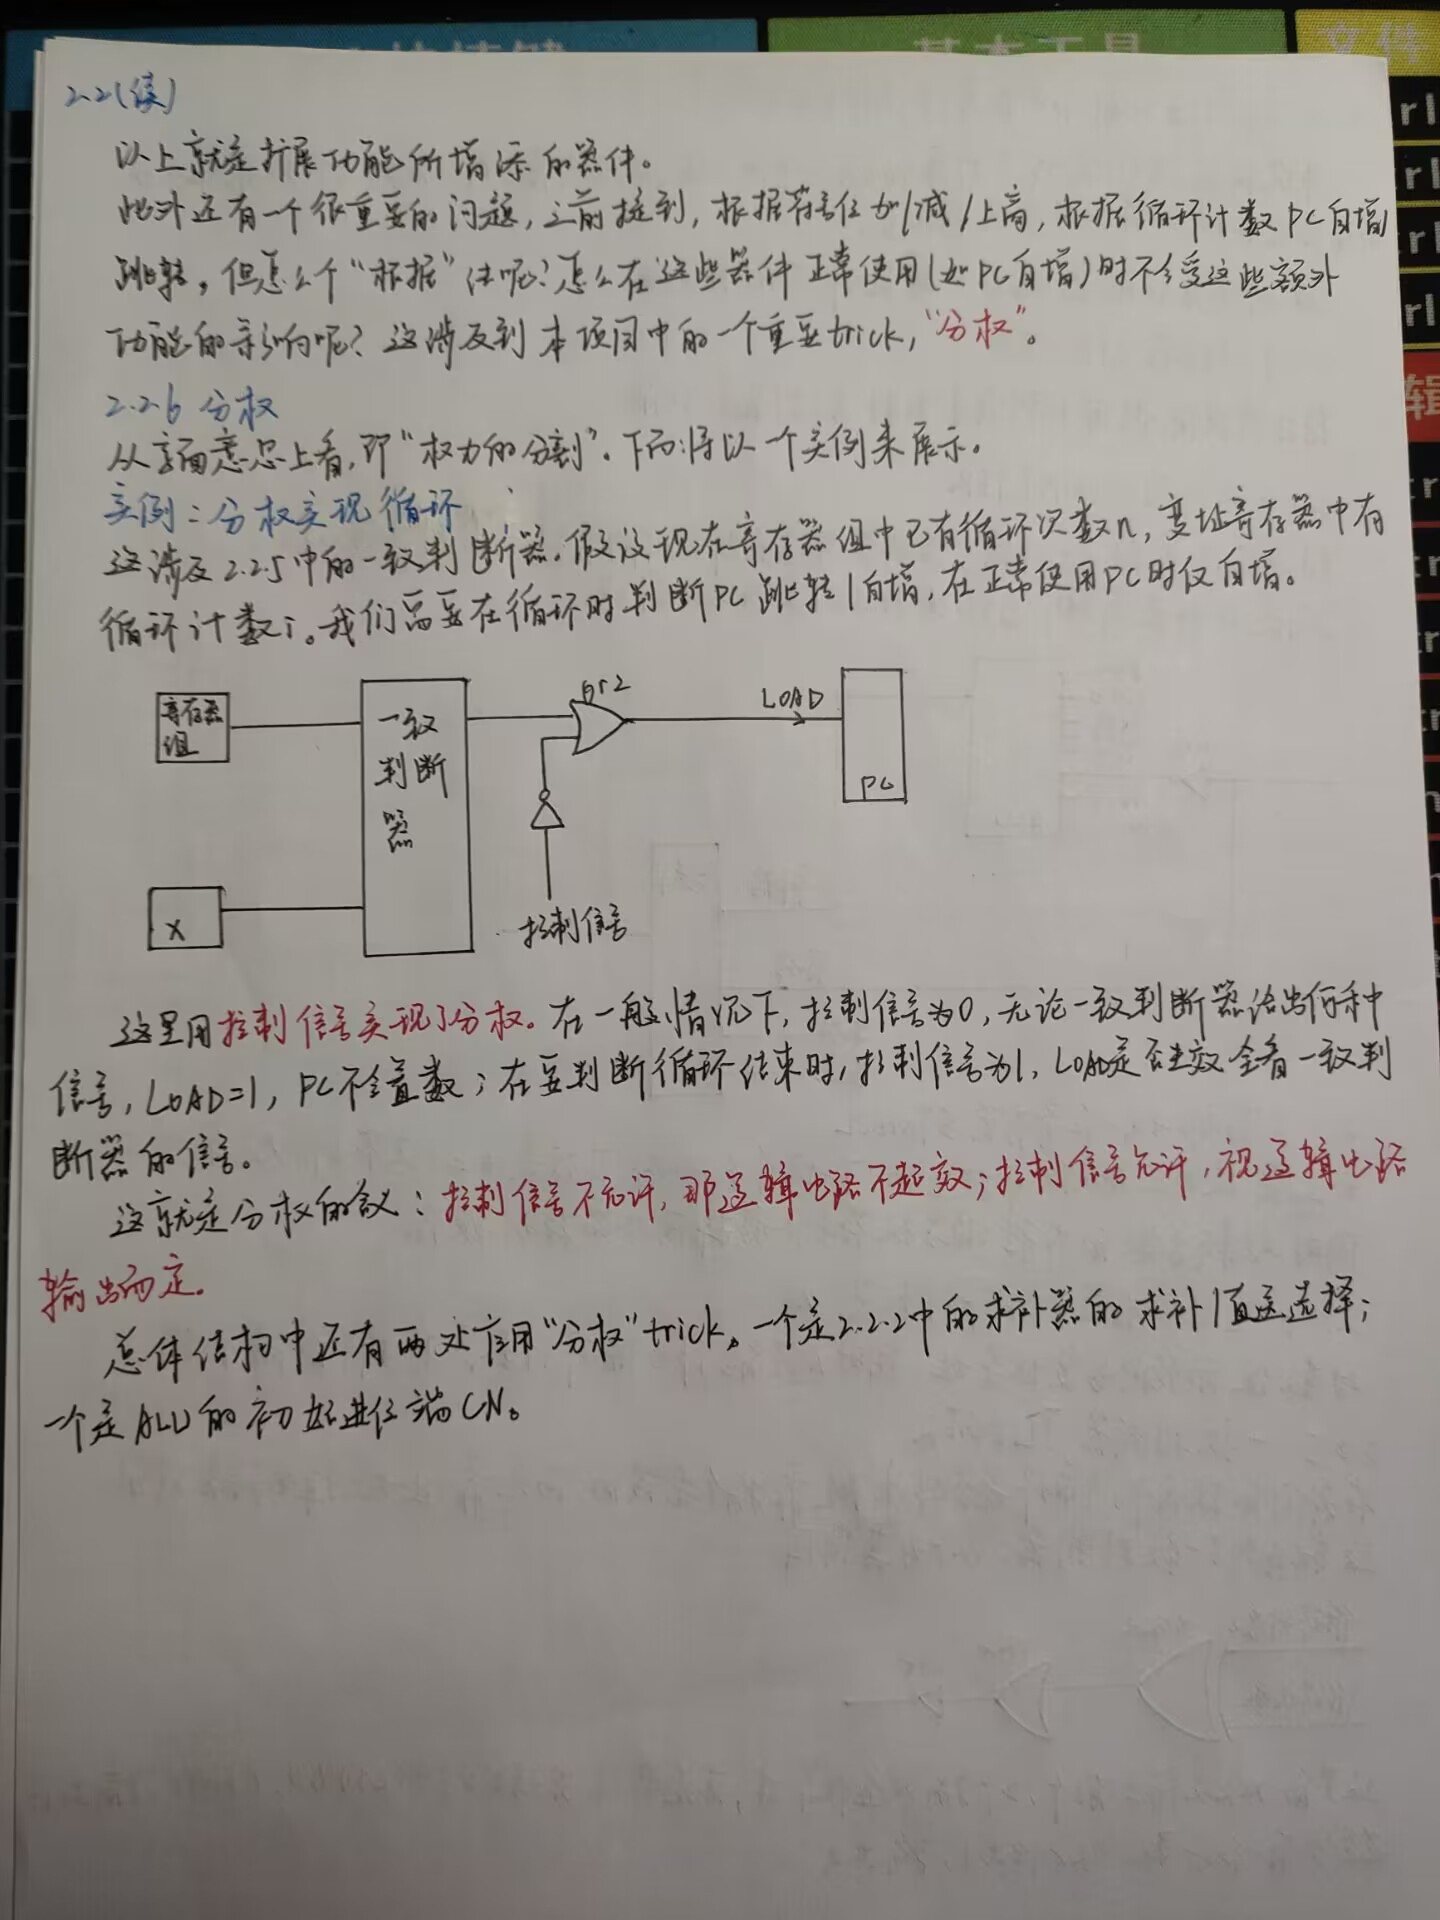 基本工具
文件
2.2(续)
以上就是扩展功能所增添的器件。
此外还有一个很重要的问题,之前提到,根据符号位加/减/上商,根据循环计数PC自增/
跳转,但怎么个“根据”法呢?怎么在这些器件正常使用(如PC自增)时不会受这些额外
功能的影响呢?这涉及到本项目中的一个重要trick,“分权”。
2.2.6 分权
从字面意思上看,即“权力的分割”。下面将以一个实例来展示。
实例:分权实现循环
这涉及2.2.5中的一致判断器。假设现在寄存器组中已有循环次数n,变址寄存器中有
循环计数i。我们需要在循环时判断PC跳转/自增,在正常使用PC时仅自增。
寄存器
组
一致
判断
器
or2
LOAD
PC
X
控制信号
这里用控制信号实现了分权。在一般情况下,控制信号为0,无论一致判断器给出何种
信号,LOAD=1,PC不会置数;在要判断循环结束时,控制信号为1,LOAD是否生效全看一致判
断器的信号。
这就是分权的含义:控制信号不允许,那逻辑电路不起效;控制信号允许,视逻辑电路
输出而定。
总体结构中还有两处应用“分权”trick。一个是2.2.2中的求补器的求补/直送选择;
一个是ALU的初始进位端CN。